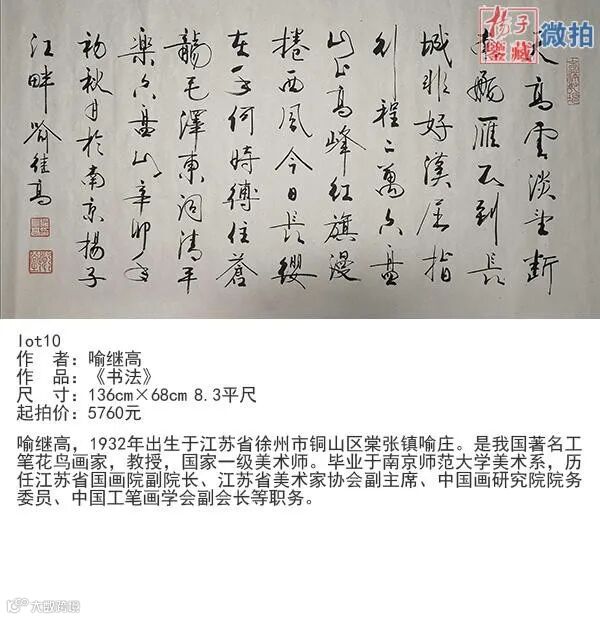 揚子
鑒藏
微拍
天高雲淡望断
南飛雁不到長
城非好漢屈指
行程二萬六盤
山上高峰紅旗漫
捲西風今日長纓
在手何時縛住蒼
龍毛澤東詞清平
樂六盤山辛卯年
初秋月於南京揚子
江畔 喻继高
lot10
作 者：喻继高
作 品：《书法》
尺 寸：136cm×68cm 8.3平尺
起拍价：5760元
喻继高，1932年出生于江苏省徐州市铜山区棠张镇喻庄。是我国著名工
笔花鸟画家，教授，国家一级美术师。毕业于南京师范大学美术系，历
任江苏省国画院副院长、江苏省美术家协会副主席、中国画研究院院务
委员、中国工笔画学会副会长等职务。
大数跨境